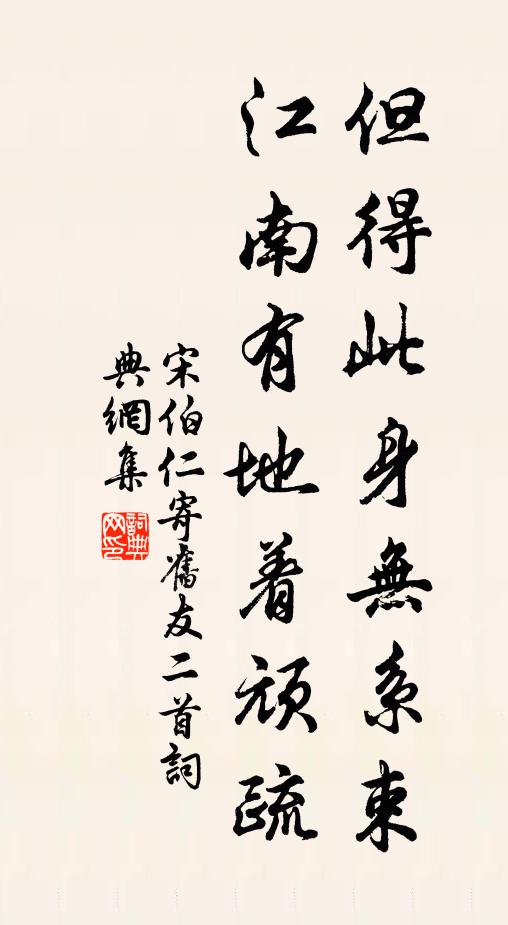 但得此身無系束
江南有地着頑疏
宋伯仁寄舊友二首詞
典網集
詞典網印